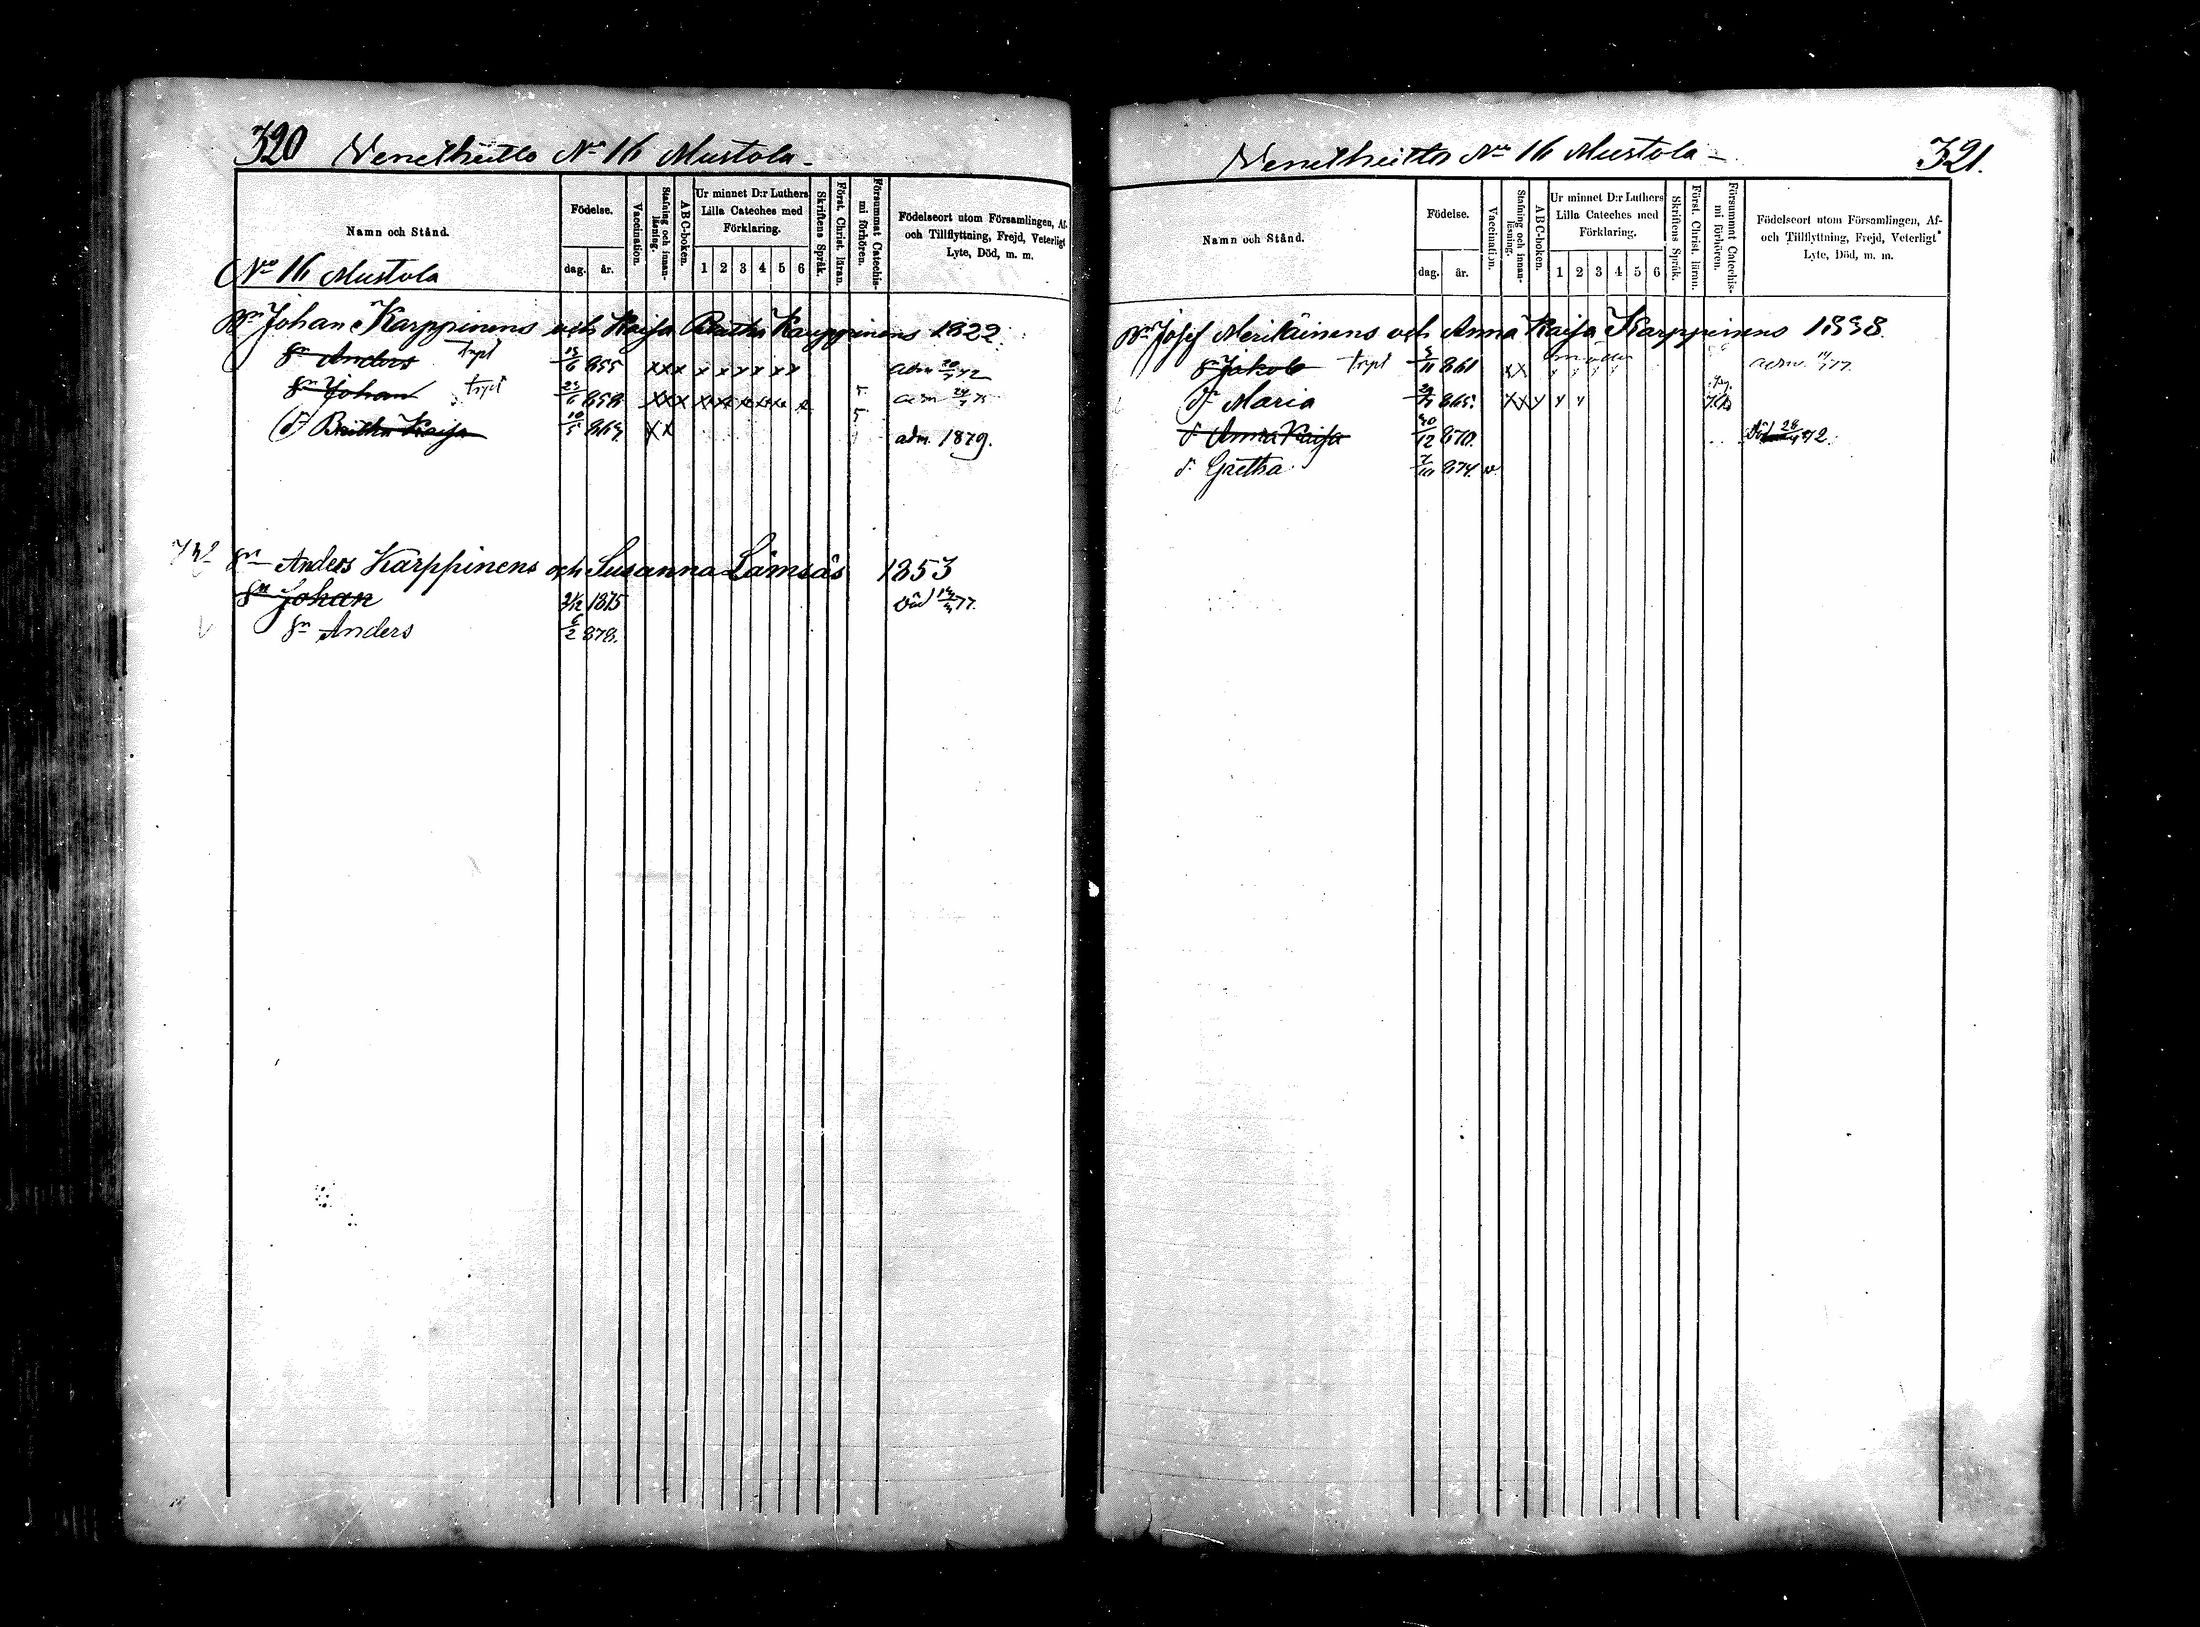 320 Wenetheitto No 16 Mustola
Namn och Stånd.
Födelse.
dag. år.
Vaccination.
Stafning och innanläsning.
A B C-boken.
Ur minnet D:r Luthers
Lilla Cateches med
Förklaring.
1 2 3 4 5 6
Skriftens Språk.
Först. Christ. läran.
Försummat Catechismi förhören.
Födelseort utom Församlingen, Af-
och Tillflyttning, Frejd, Veterligt
Lyte, Död, m. m.
No 16 Mustola
Bn Johan Karppinens och Kaisa Karppinens 1822
Sn Anders 6 855 xxx x x x x x x adm 72
Sn Johan 858 xxx adm
d Britha Kaisa 10/5 863 xx adm. 1879.
Sn Anders Karppinens och Susanna Lämsäs 1853
Sn Johan 1875 död 77.
Sn Anders 6/2 878.
Wenetheitto No 16 Mustola 321.
Namn och Stånd.
Födelse.
dag. år.
Vaccination.
Stafning och innanläsning.
A B C-boken.
Ur minnet D:r Luthers
Lilla Cateches med
Förklaring.
1 2 3 4 5 6
Skriftens Språk.
Först. Christ. läran.
Försummat Catechismi förhören.
Födelseort utom Församlingen, Af-
och Tillflyttning, Frejd, Veterligt
Lyte, Död, m. m.
Bn Josef Meriläinens och Anna Kaisa Karppinens 1838.
Sn Jakob 5/11 861 adm. 77.
dr Maria 865.
d. Anna Kaisa 30/12 870. död 872.
d. Gretha 7/10 874. v